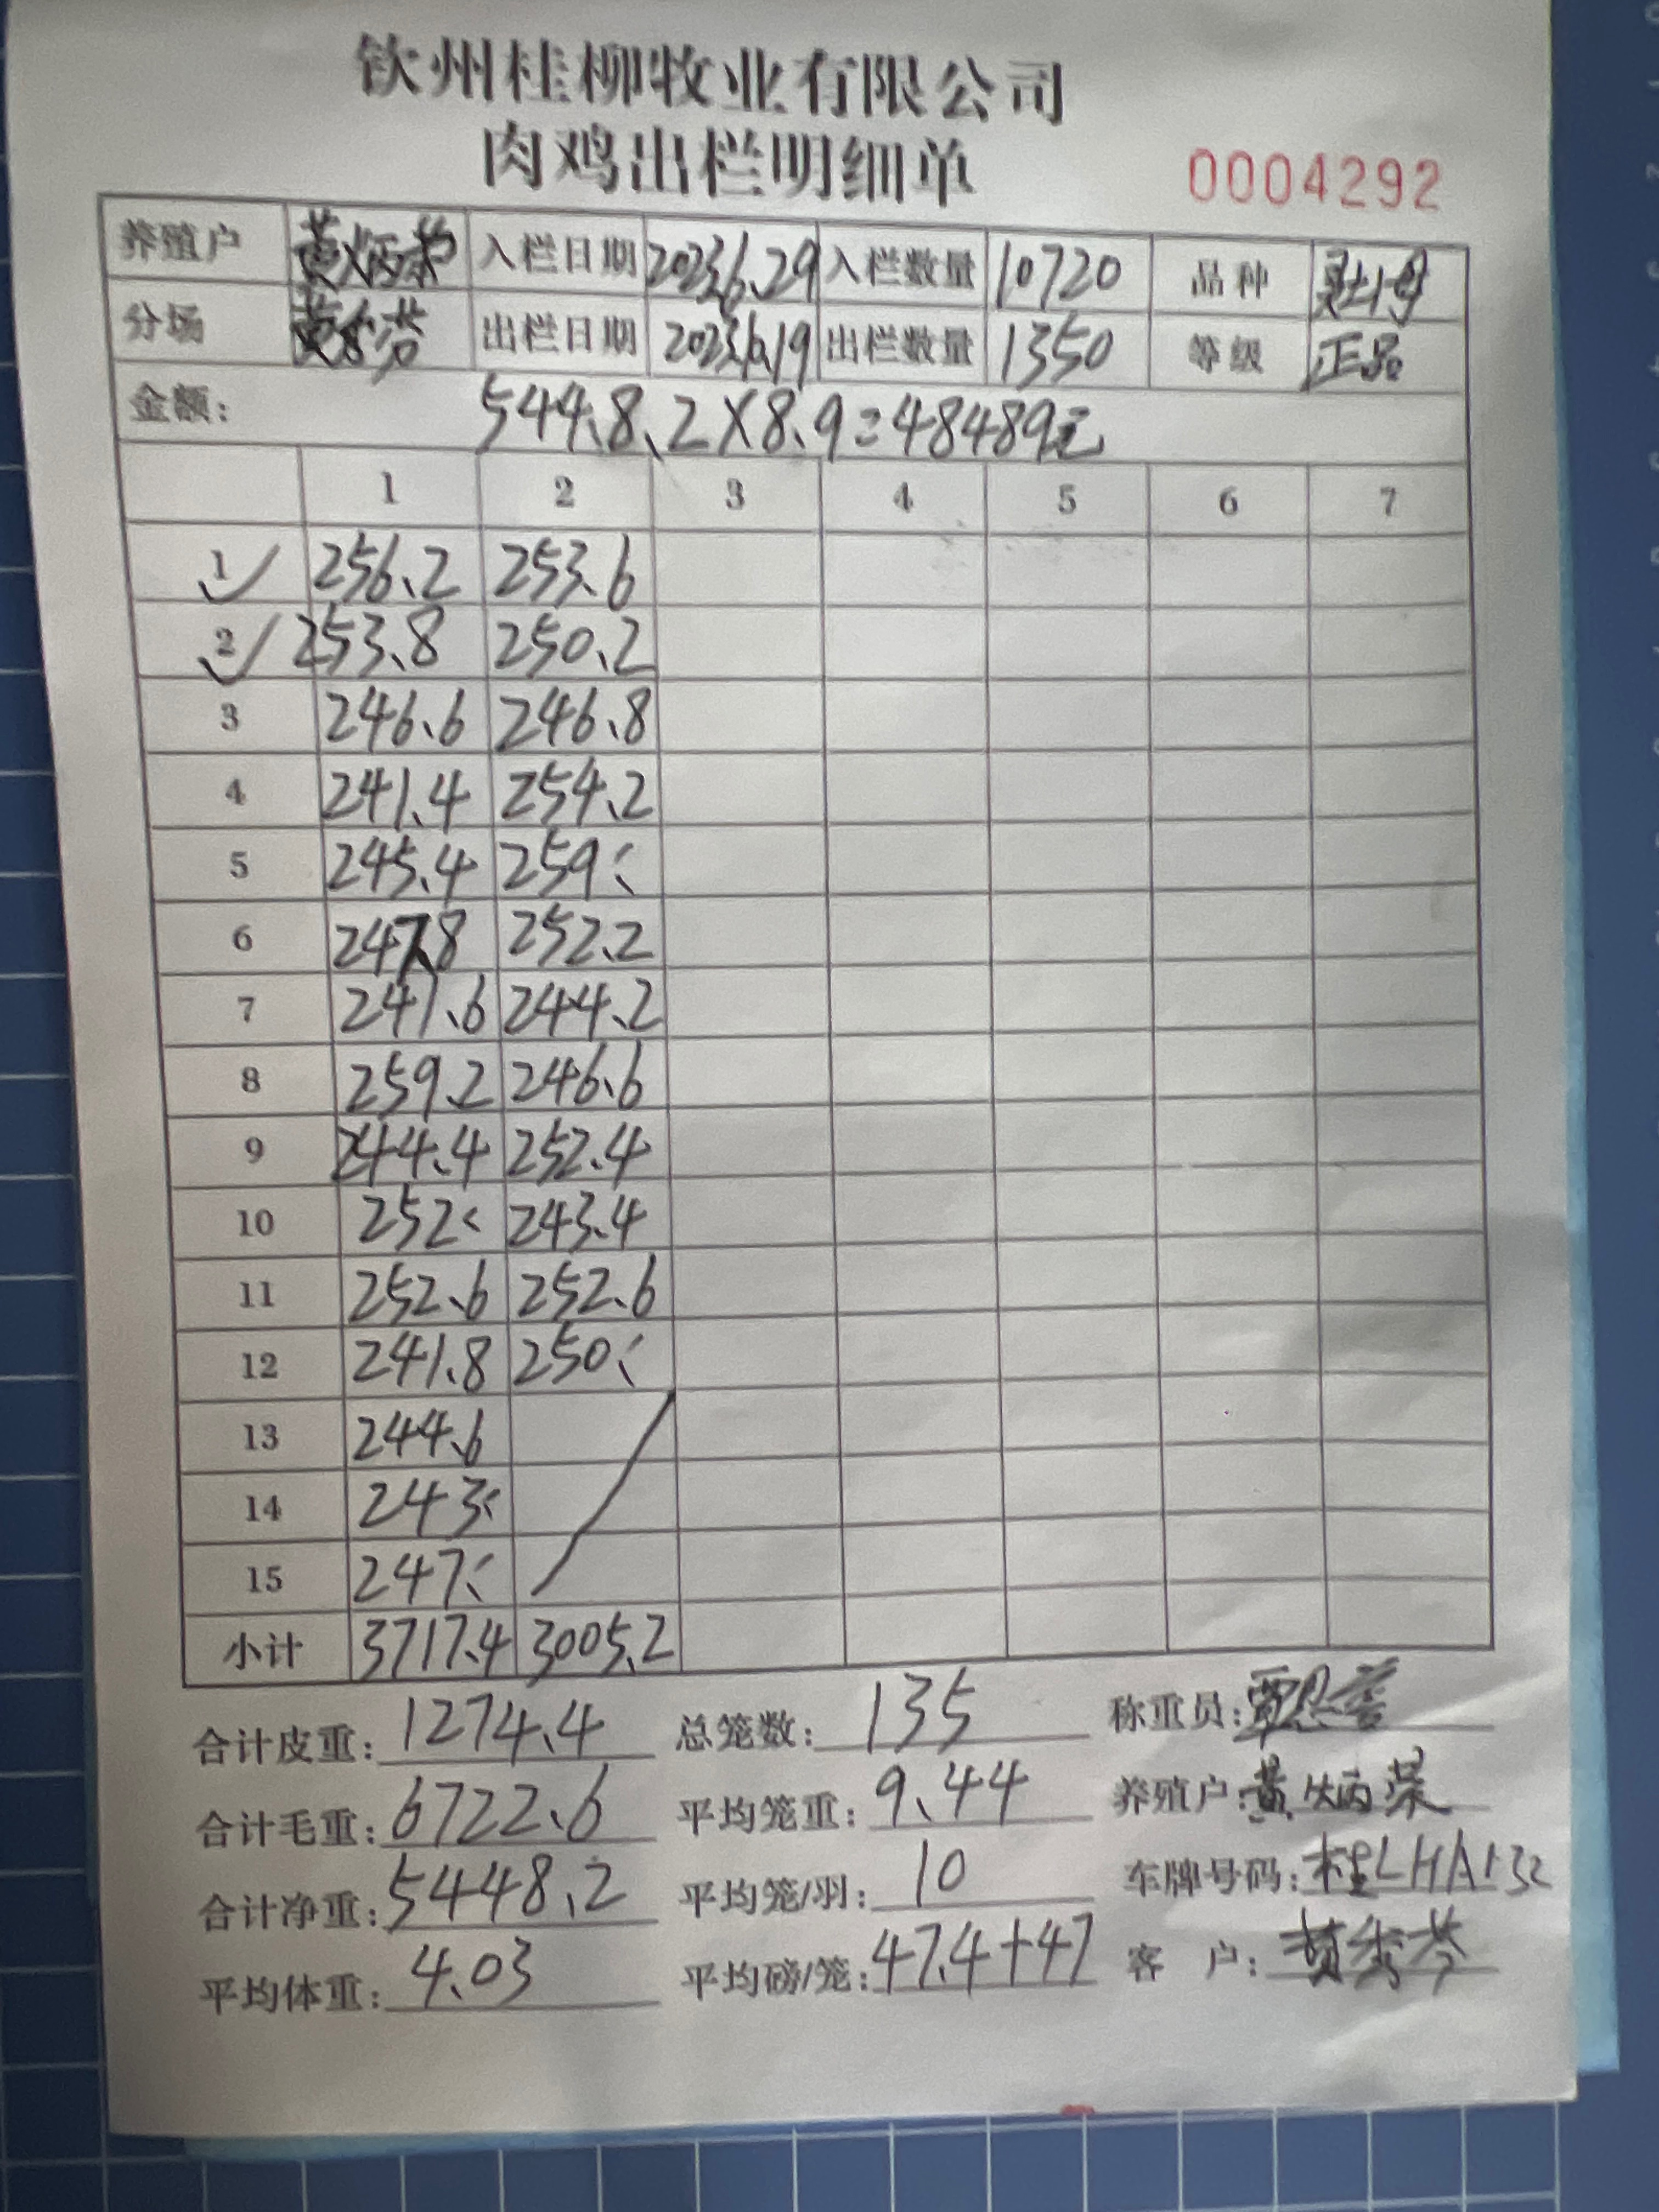 钦州桂柳牧业有限公司
肉鸡出栏明细单 0004292
养殖户 黄炳荣 入栏日期 2023.6.29 入栏数量 10720 品种
分场 黄秀芬 出栏日期 出栏数量 1350 等级 正品
金额: 544.8.2X8.9=48489元
1 2 3 4 5 6 7
1 256.2 253.6
2 253.8 250.2
3 246.6 246.8
4 241.4 254.2
5 245.4 259
6 247.8 252.2
7 241.6 244.2
8 259.2 246.6
9 244.4 252.4
10 252 243.4
11 252.6 252.6
12 241.8 250
13 244.6
14 243
15 247
小计 3717.4 3005.2
合计皮重: 1274.4 总笼数: 135 称重员:
合计毛重: 6722.6 平均笼重: 9.44 养殖户: 黄炳荣
合计净重: 5448.2 平均笼/羽: 10 车牌号码: 桂LHA132
平均体重: 4.03 平均磅/笼: 47.4+47 客户: 黄秀芬